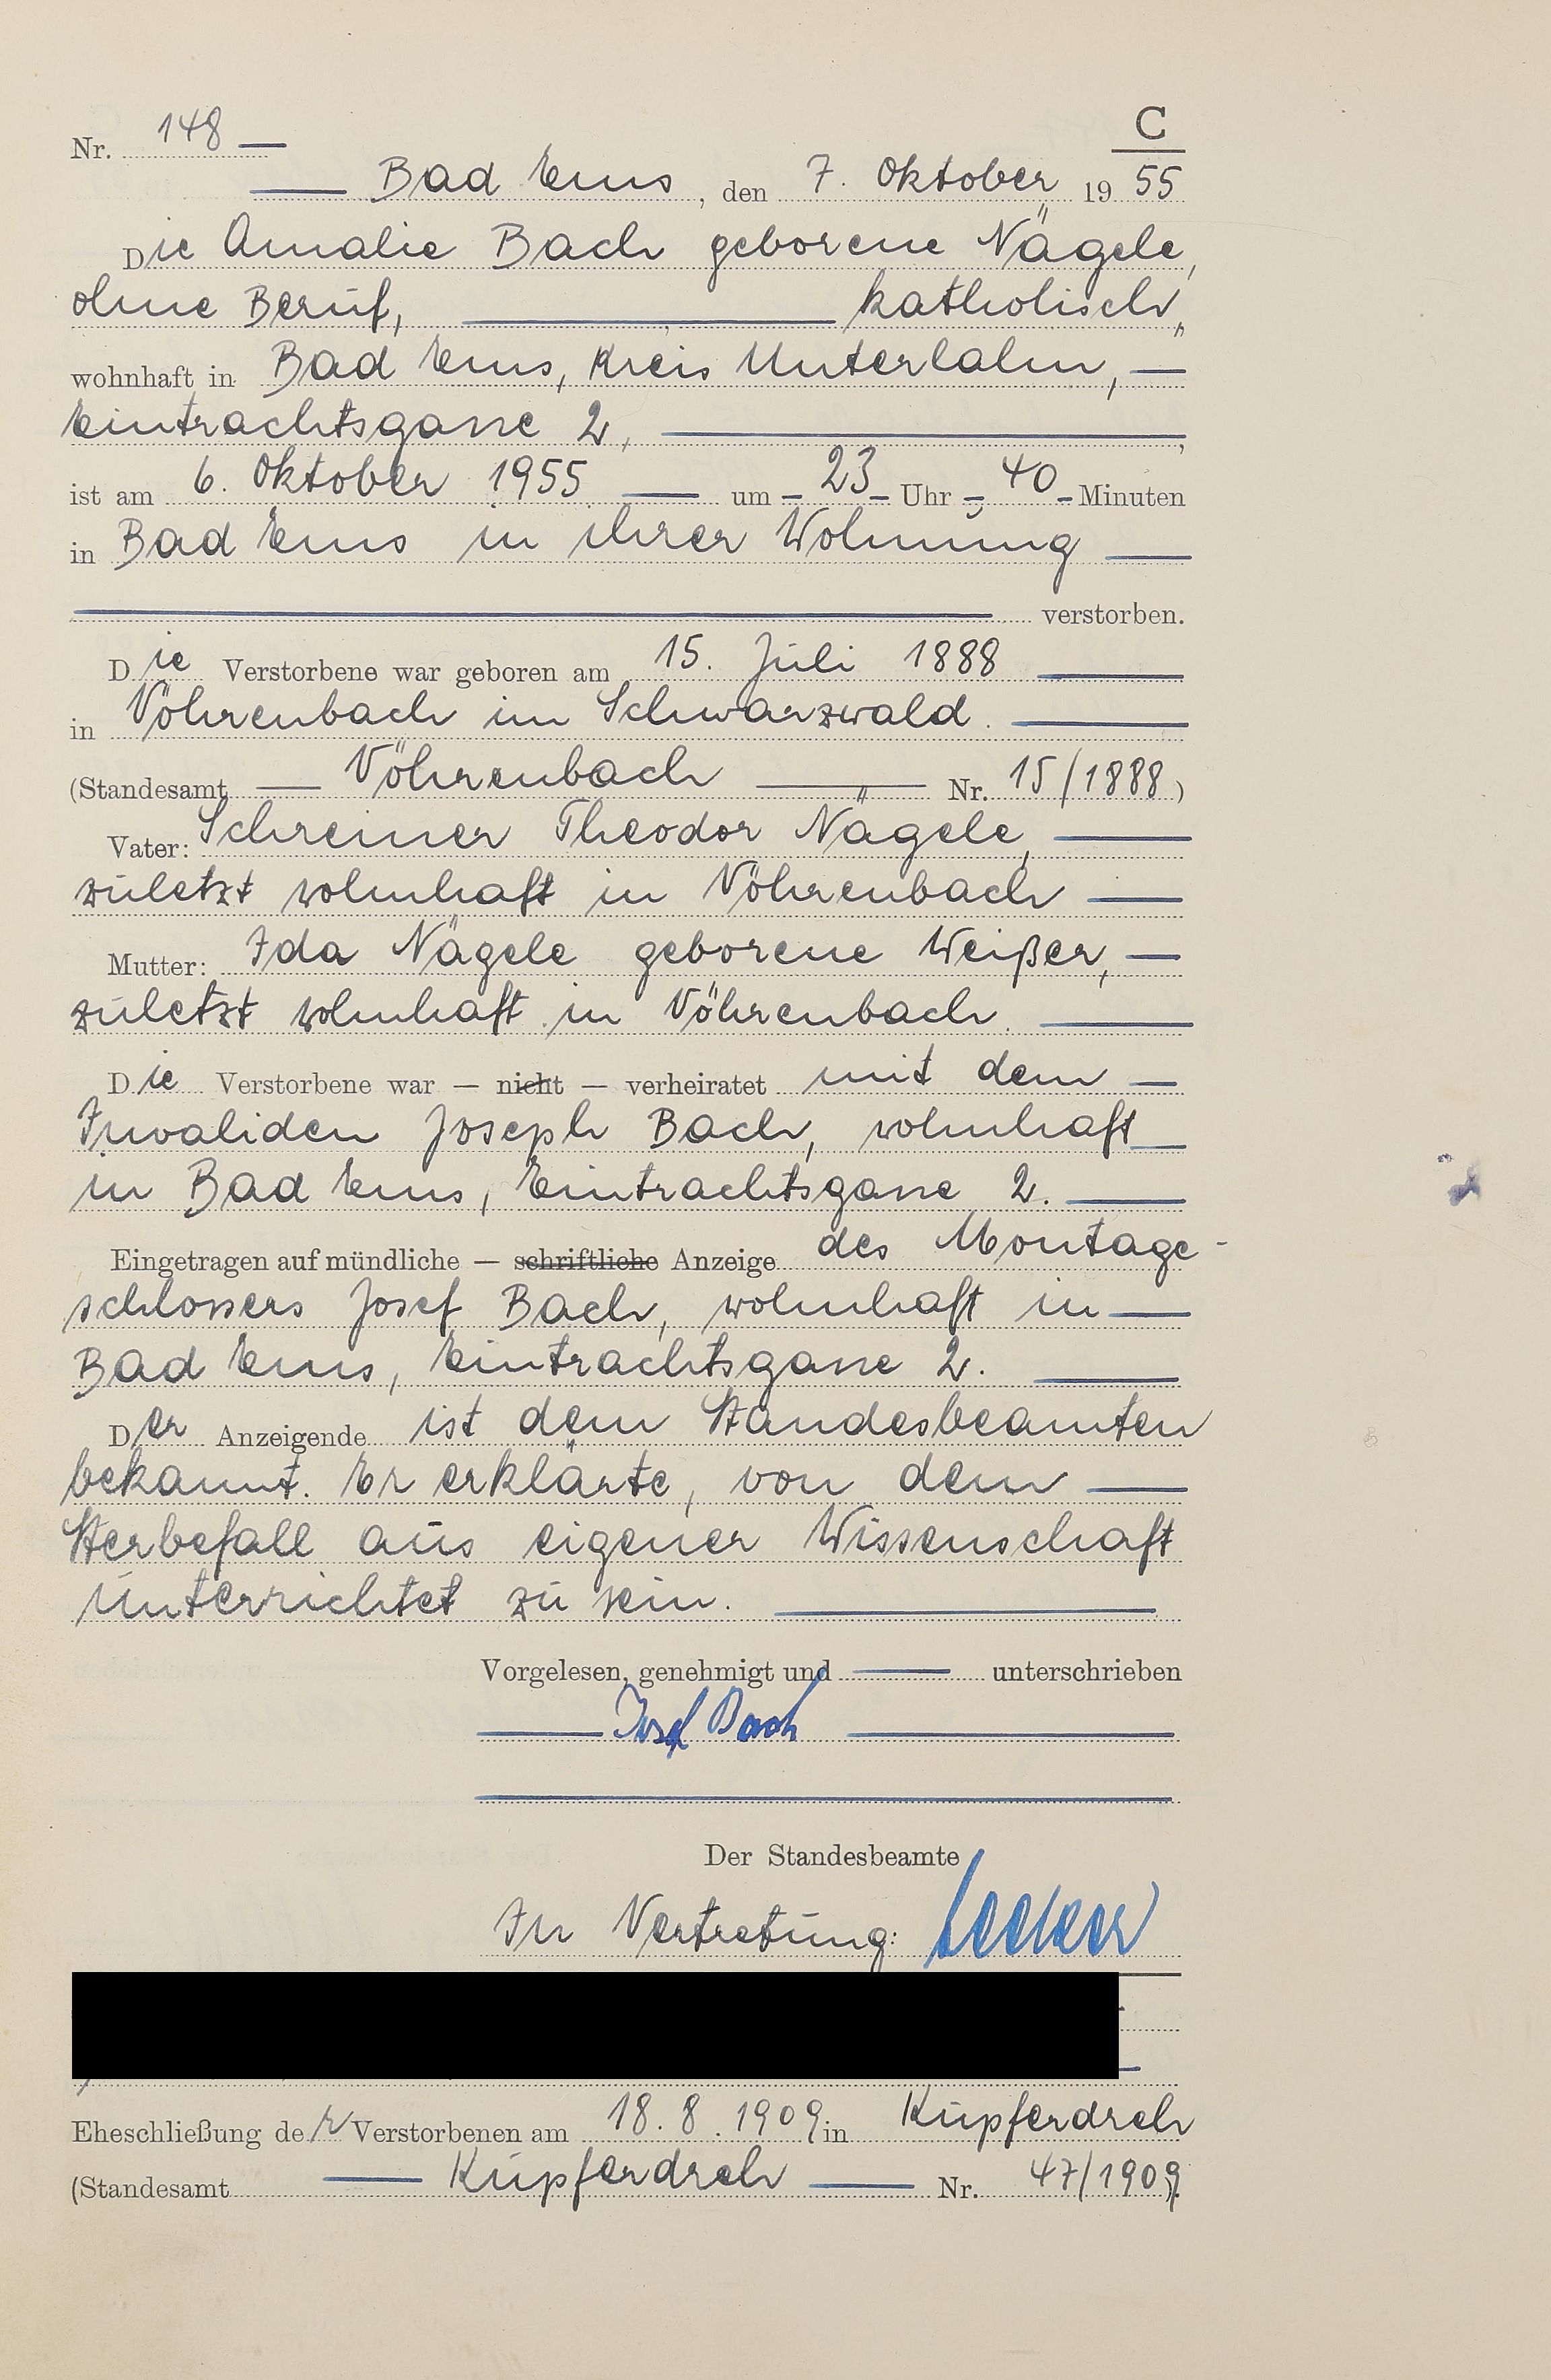 C
Nr. 148
Bad Ems, den 7. Oktober 1955
Die Amalie Bach geborene Nägele,
ohne Beruf, katholisch,
wohnhaft in Bad Ems, Kreis Unterlahn,
Eintrachtsgasse 2,
ist am 6. Oktober 1955 um 23 Uhr 40 Minuten
in Bad Ems in ihrer Wohnung
verstorben.
Die Verstorbene war geboren am 15. Juli 1888
in Vöhrenbach im Schwarzwald.
(Standesamt Vöhrenbach Nr. 15/1888)
Vater: Schreiner Theodor Nägele,
zuletzt wohnhaft in Vöhrenbach
Mutter: Ida Nägele geborene Weißer,
zuletzt wohnhaft in Vöhrenbach.
Die Verstorbene war — nicht — verheiratet mit dem
Invaliden Joseph Bach, wohnhaft
in Bad Ems, Eintrachtsgasse 2.
Eingetragen auf mündliche — schriftliche Anzeige des Montage-
schlossers Josef Bach, wohnhaft in
Bad Ems, Eintrachtsgasse 2.
Der Anzeigende ist dem Standesbeamten
bekannt. Er erklärte, von dem
Sterbefall aus eigener Wissenschaft
unterrichtet zu sein.
Vorgelesen, genehmigt und unterschrieben
Josef Bach
Der Standesbeamte
In Vertretung:
Eheschließung der Verstorbenen am 18.8.1909 in Kupferdreh
(Standesamt Kupferdreh Nr. 47/1909).